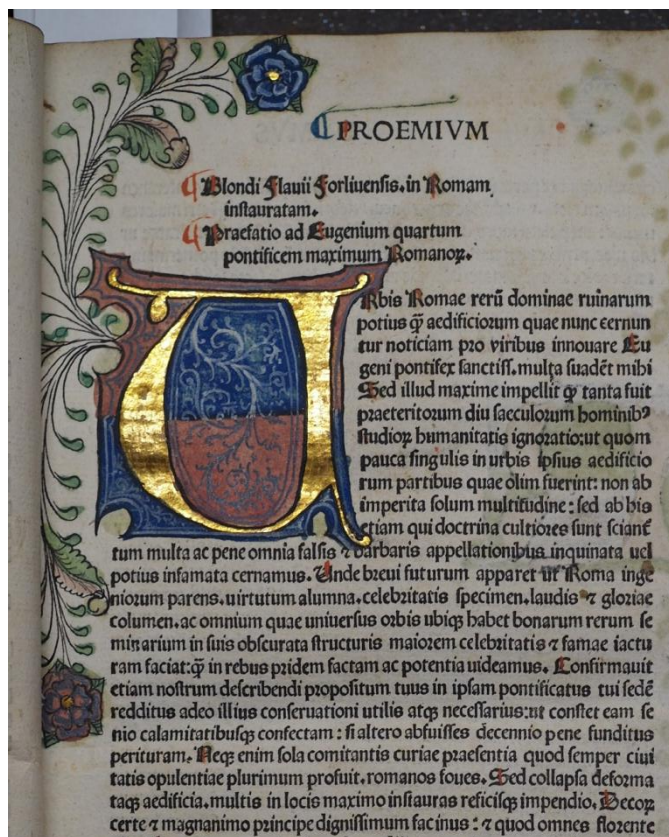 PROEMIVM
Blondi Flauii Forliuensis.in Romam
instauratam.
Praefatio ad Eugenium quartum
pontificem maximum Romanoꝝ.
URbis Romae rerū dominae ruinarum
potius q̄ aedificiorum quae nunc cernun
tur noticiam pro viribus innouare Eu
geni pontifex sanctiss.multa suadēt mihi
Sed illud maxime impellit q̄ tanta fuit
praeteritorum diu saeculorum hominibꝰ
studioꝝ humanitatis ignoratio:ut quom
pauca singulis in urbis ipsius aedificio
rum partibus quae olim fuerint: non ab
imperita solum multitudine: sed ab his
etiam qui doctrina cultiores sunt sciant
tum multa ac pene omnia falsis ⁊ barbaris appellationibus inquinata uel
potius infamata cernamus. Unde breui futurum apparet ut Roma inge
niorum parens.uirtutum alumna.celebritatis specimen.laudis ⁊ gloriae
columen.ac omnium quae uniuersus orbis ubiqꝫ habet bonarum rerum se
minarium in suis obscurata structuris maiorem celebritatis ⁊ famae iactu
ram faciat:q̄ in rebus pridem factam ac potentia uideamus. Confirmauit
etiam nostrum describendi propositum tuus in ipsam pontificatus tui sedē
redditus adeo illius conseruationi utilis atqꝫ necessarius:ut constet eam se
nio calamitatibusqꝫ confectam: si altero abfuisses decennio pene funditus
perituram. Neqꝫ enim sola comitantis curiae praesentia quod semper ciui
tatis opulentiae plurimum profuit.romanos foues. Sed collapsa deforma
taqꝫ aedificia.multis in locis maximo instauras reficisqꝫ impendio. Decoꝝ
certe ⁊ magnanimo principe dignissimum facinus: ⁊ quod omnes florente